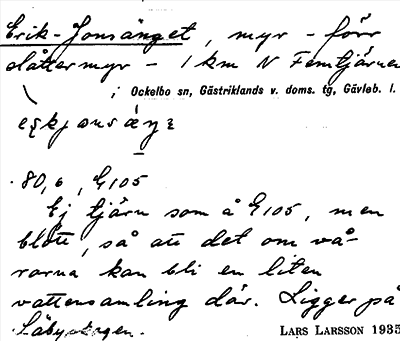 Erik-Jonsänget, myr - förr
slåttermyr - 1 km N Femtjärnen
i Ockelbo sn, Gästriklands v. doms. tg, Gävleb. l.
80, 6, G105
Ej tjärn som å G105, men
blött, så att det om vå-
rarna kan bli en liten
vattensamling där. Ligger på
Säbyskogen.
LARS LARSSON 1935